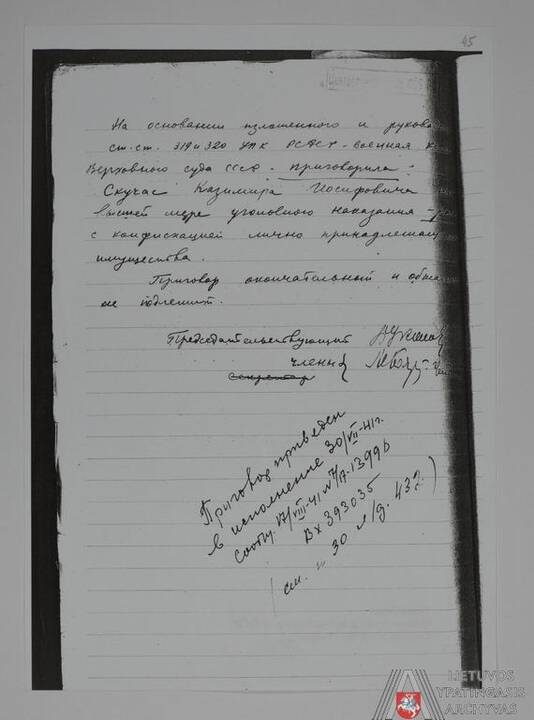 45
На основании изложенного и руково
ст.ст. 319 и 320 УПК РСФСР - военная ко
Верховного суда СССР - приговорила:
Скучас Казимира Иосифовича
высшей мере уголовного наказания - ра
с конфискацией лично принадлежащ
имущества.
Приговор окончательный и обжа
не подлежит.
Председательствующий
члены
секретар
Приговор приведен
в исполнение 30/VII-41г.
сообщ. 17/VIII-41 № 7/А-13996
Вх 393035
(см. " 30 л/д. 432)
LIETUVOS
YPATINGASIS
ARCHYVAS